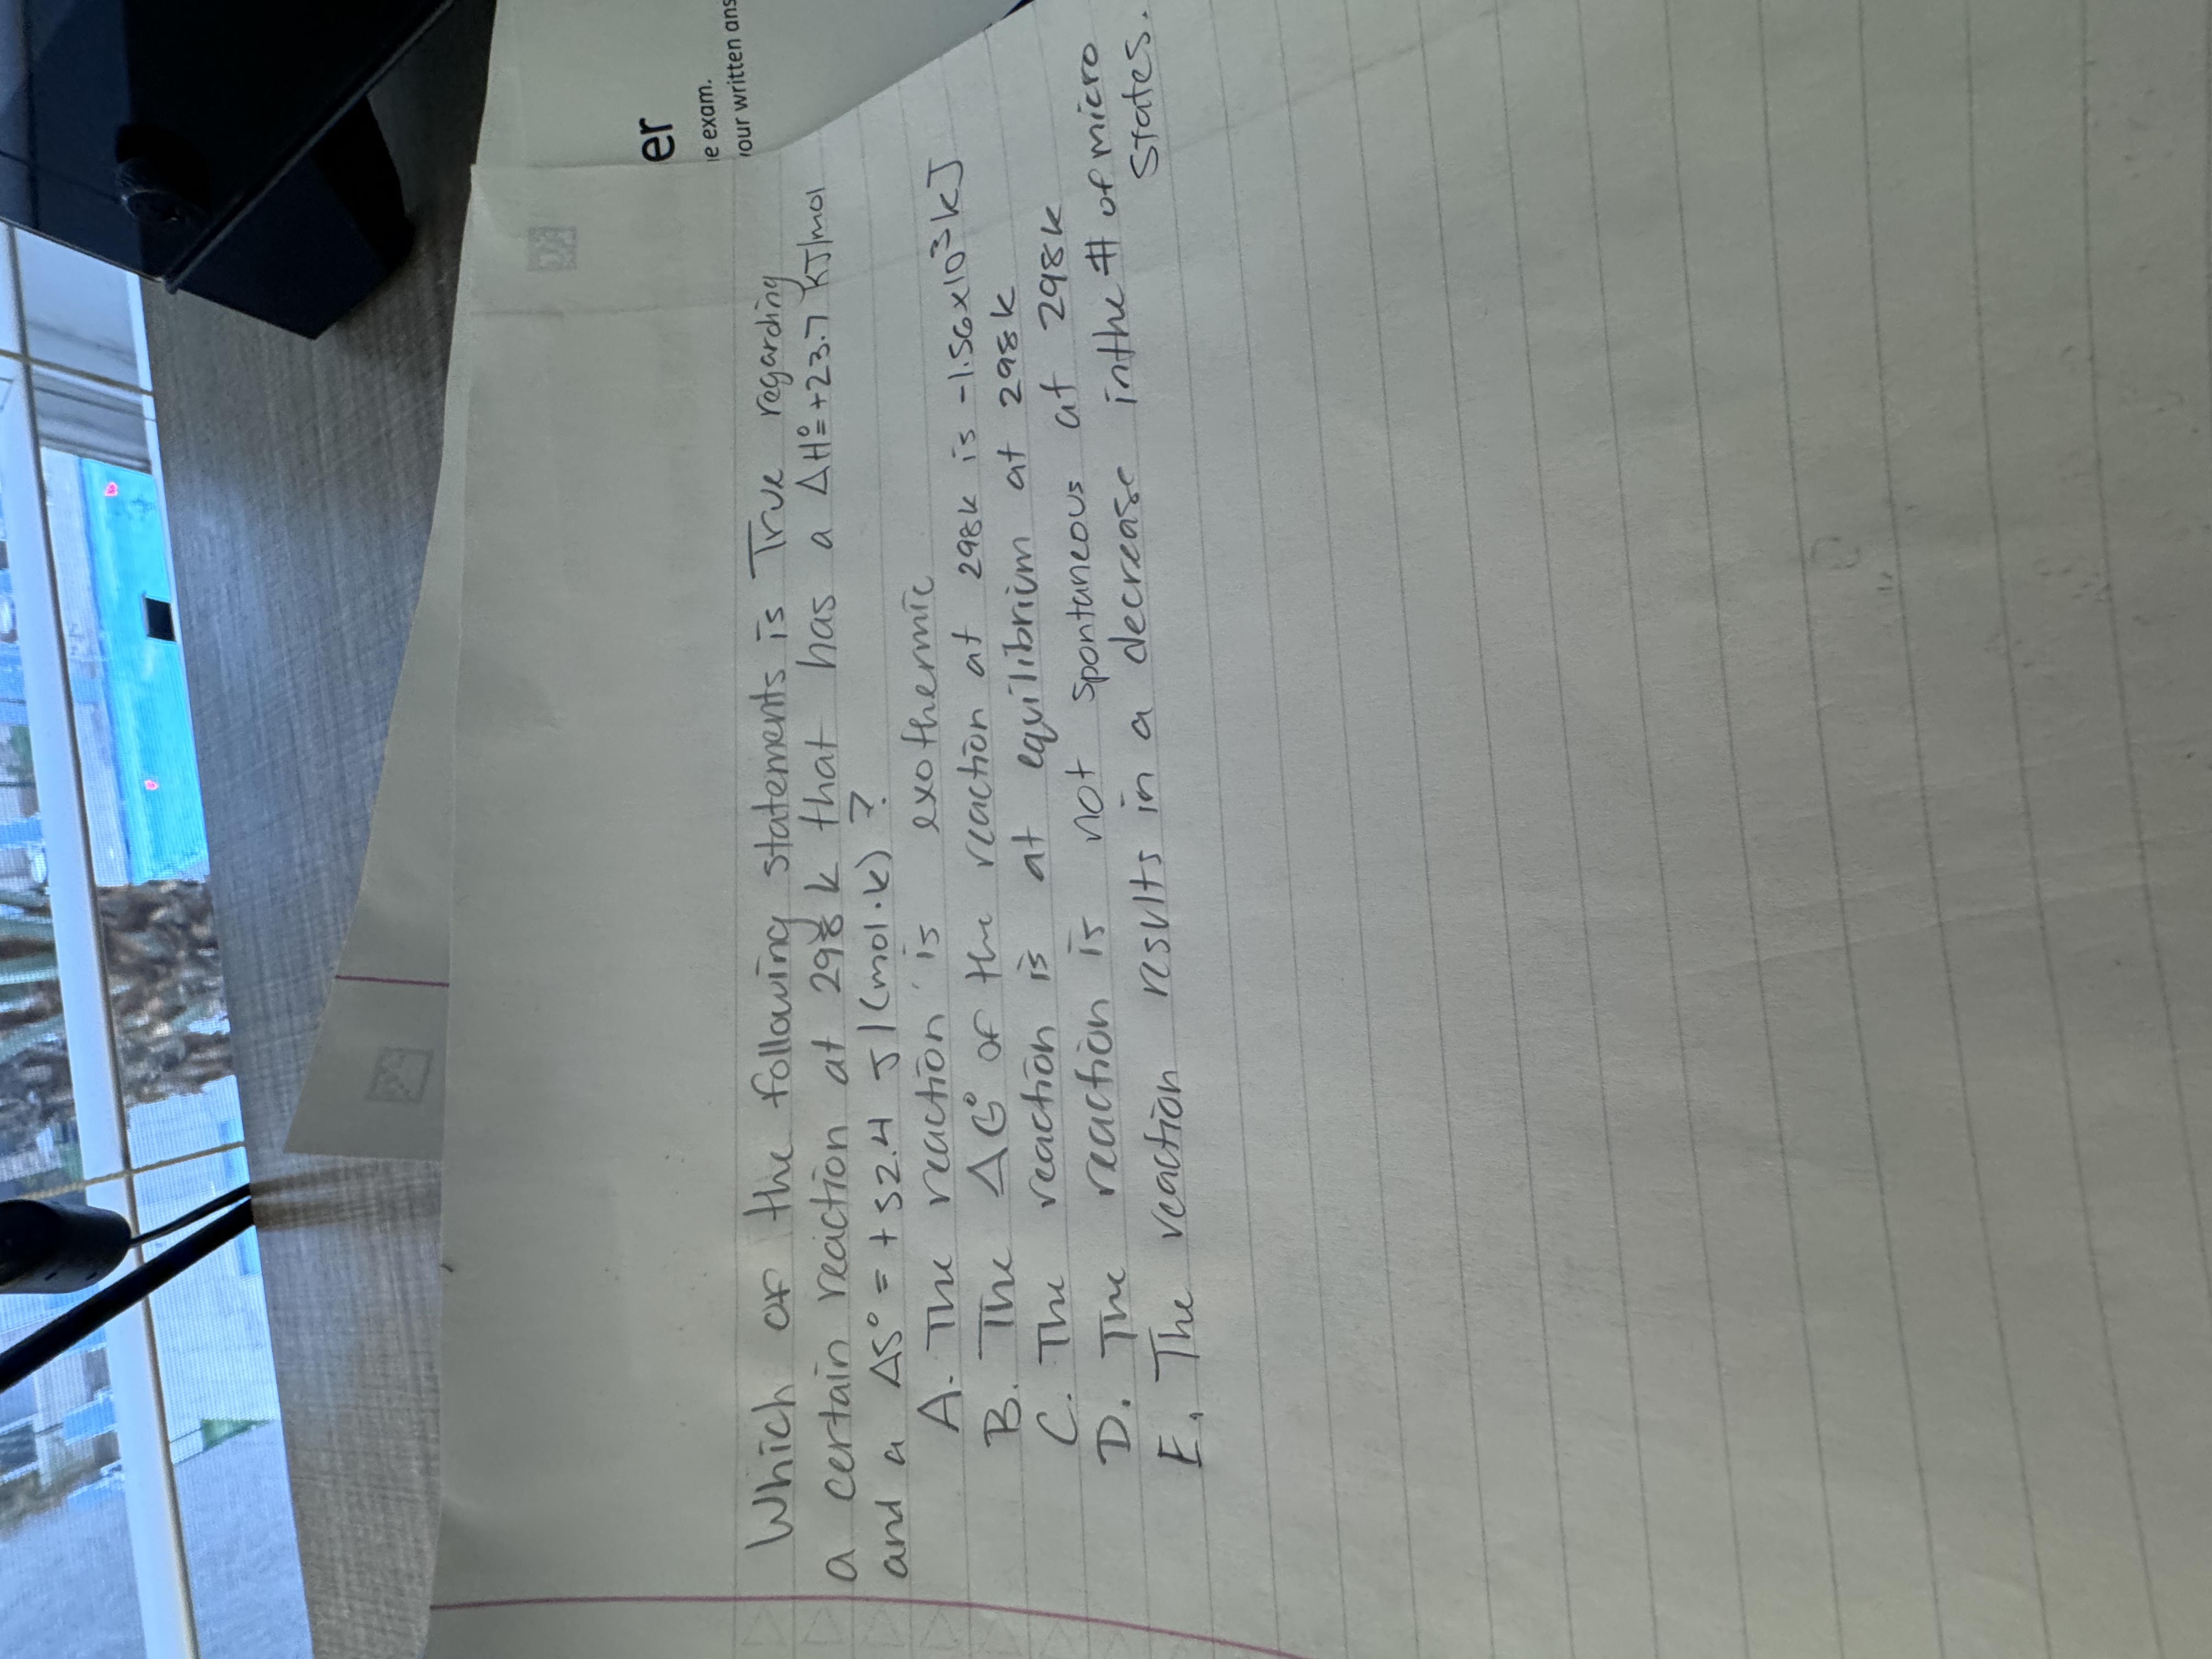 er
e exam.
our written ans
Which of the following statements is True regarding
a certain reaction at 298 K that has a ΔH°=+23.7 kJ/mol
and a ΔS° = + 52.4 J/(mol·K) ?
A. The reaction is exothermic
B. The ΔG° of the reaction at 298K is -1.56x10³ kJ
C. The reaction is at equilibrium at 298K
D. The reaction is not spontaneous at 298K
E. The reaction results in a decrease in the # of micro
states.